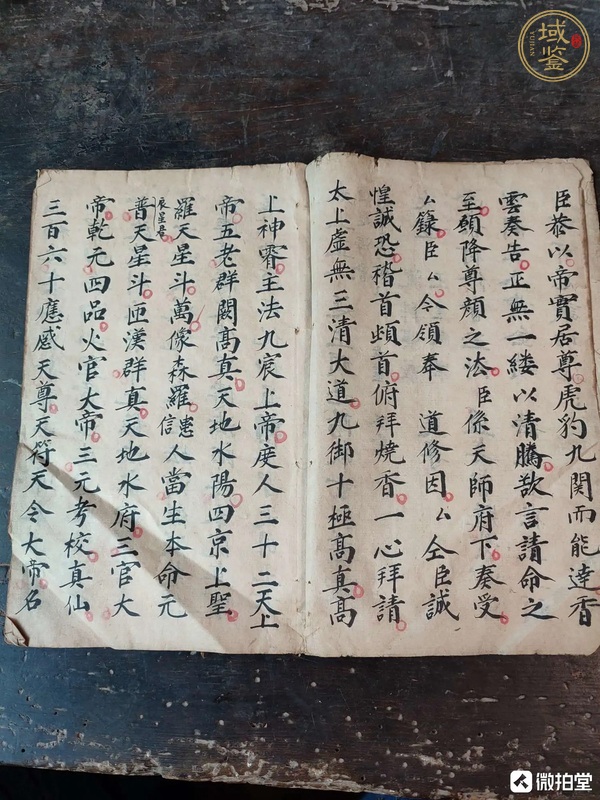 臣恭以帝實居尊虎豹九関而能達香
雲奏告正無一縷以清騰欲言請命之
至頋降尊顔之法臣係天師府下奏受
厶籙臣厶今領奉 道修因厶仝臣誠
惶誠恐稽首頓首俯拜燒香一心拜請
太上虛無三清大道九御十極髙真髙
上神霄主法九宸上帝度人三十二天上
帝五老群闕髙真天地水陽四京上聖
羅天星斗萬像森羅信人當生本命元
辰星君
普天星斗匝漢群真天地水府三官大
帝乾元四品火官大帝三元考校真仙
三百六十應感天尊天符天令大帝名
域鉴
YUJIAN
微拍堂